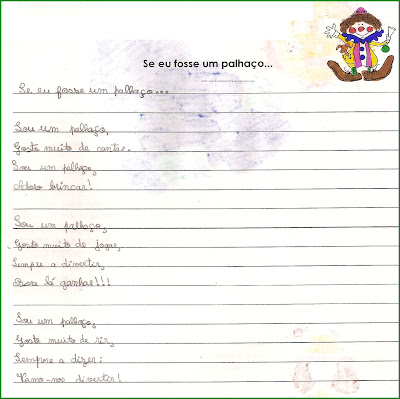 Se eu fosse um palhaço...
Se eu fosse um palhaço...
Sou um palhaço,
Gosto muito de cantar.
Sou um palhaço,
Adoro brincar!
Sou um palhaço,
Gosto muito de jogar,
Sempre a divertir,
Bora lá ganhar!!!
Sou um palhaço,
Gosto muito de rir,
Sempre a dizer:
Vamo-nos divertir!